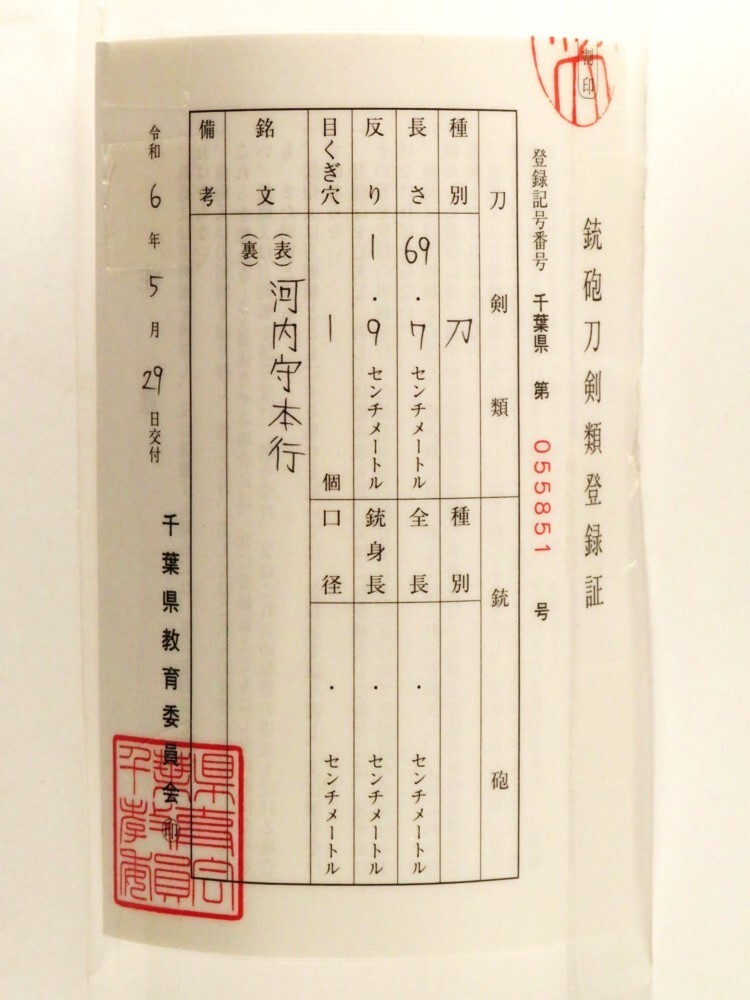 割印
銃砲刀剣類登録証
登録記号番号 千葉県 第 055851 号
刀剣類
種別 刀
長さ 69.7センチメートル
反り 1.9センチメートル
目くぎ穴 1個
銘文 (表) 河内守本行
(裏)
備考
銃砲
種別
全長 ・ センチメートル
銃身長 ・ センチメートル
口径 ・ センチメートル
令和6年5月29日交付
千葉県教育委員会 印